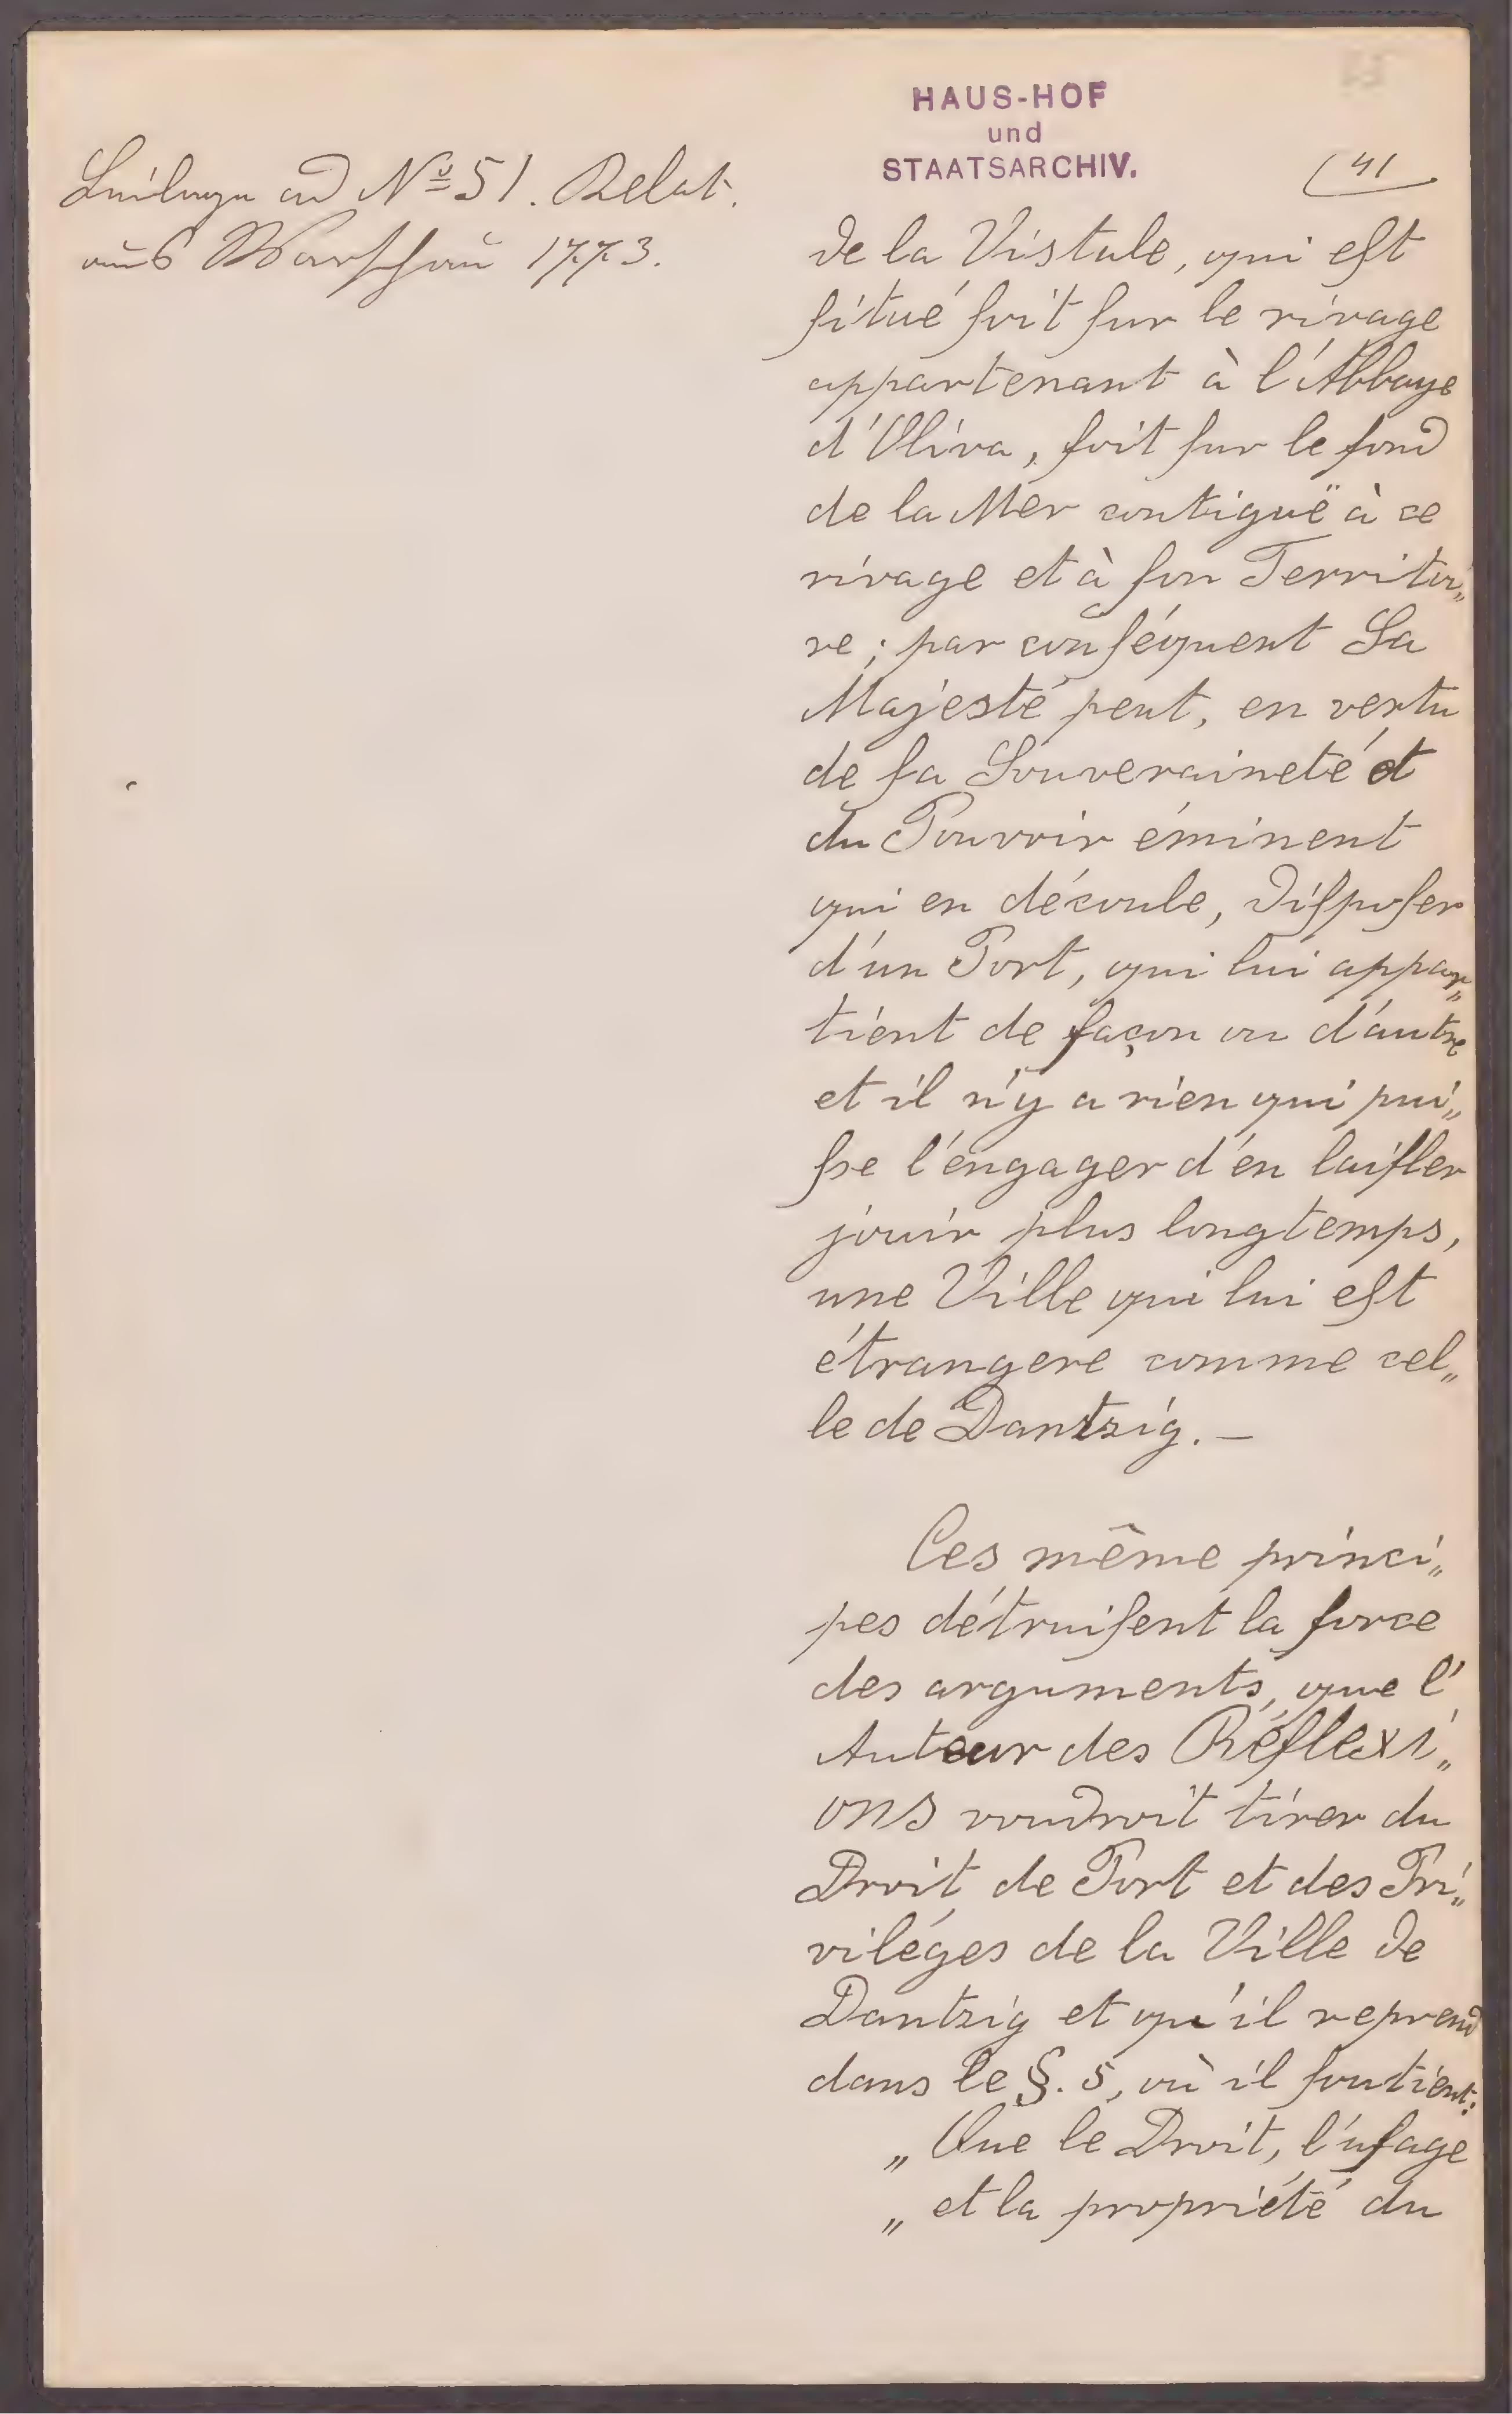 HAUS-HOF
und
STAATSARCHIV.
41
Beilage ad No 51. Relat.
aus Warschau 1773.
de la Vistule, qui est
situé soit sur le rivage
appartenant à l'Abbaye
d'Oliva, soit sur le fond
de la Mer contiguë à ce
rivage et à son Territoi„
re; par conséquent Sa
Majesté peut, en vertu
de sa Souveraineté et
du Pouvoir éminent
qui en découle, disposer
d'un Port, qui lui appar„
tient de façon ou d'autre
et il n'y a rien qui pui„
sse l'engager d'en laisser
jouir plus longtemps,
une Ville qui lui est
étrangere comme cel„
le de Dantzig.—
Ces même princi„
pes détruisent la force
des arguments, que l'
Auteur des Réflexi„
ons voudroit tirer du
Droit de Port et des Pri„
viléges de la Ville de
Dantzig et qu'il reprend
dans le §. 5, où il soutient:
„ Que le Droit, l'usage
„ et la propriété du